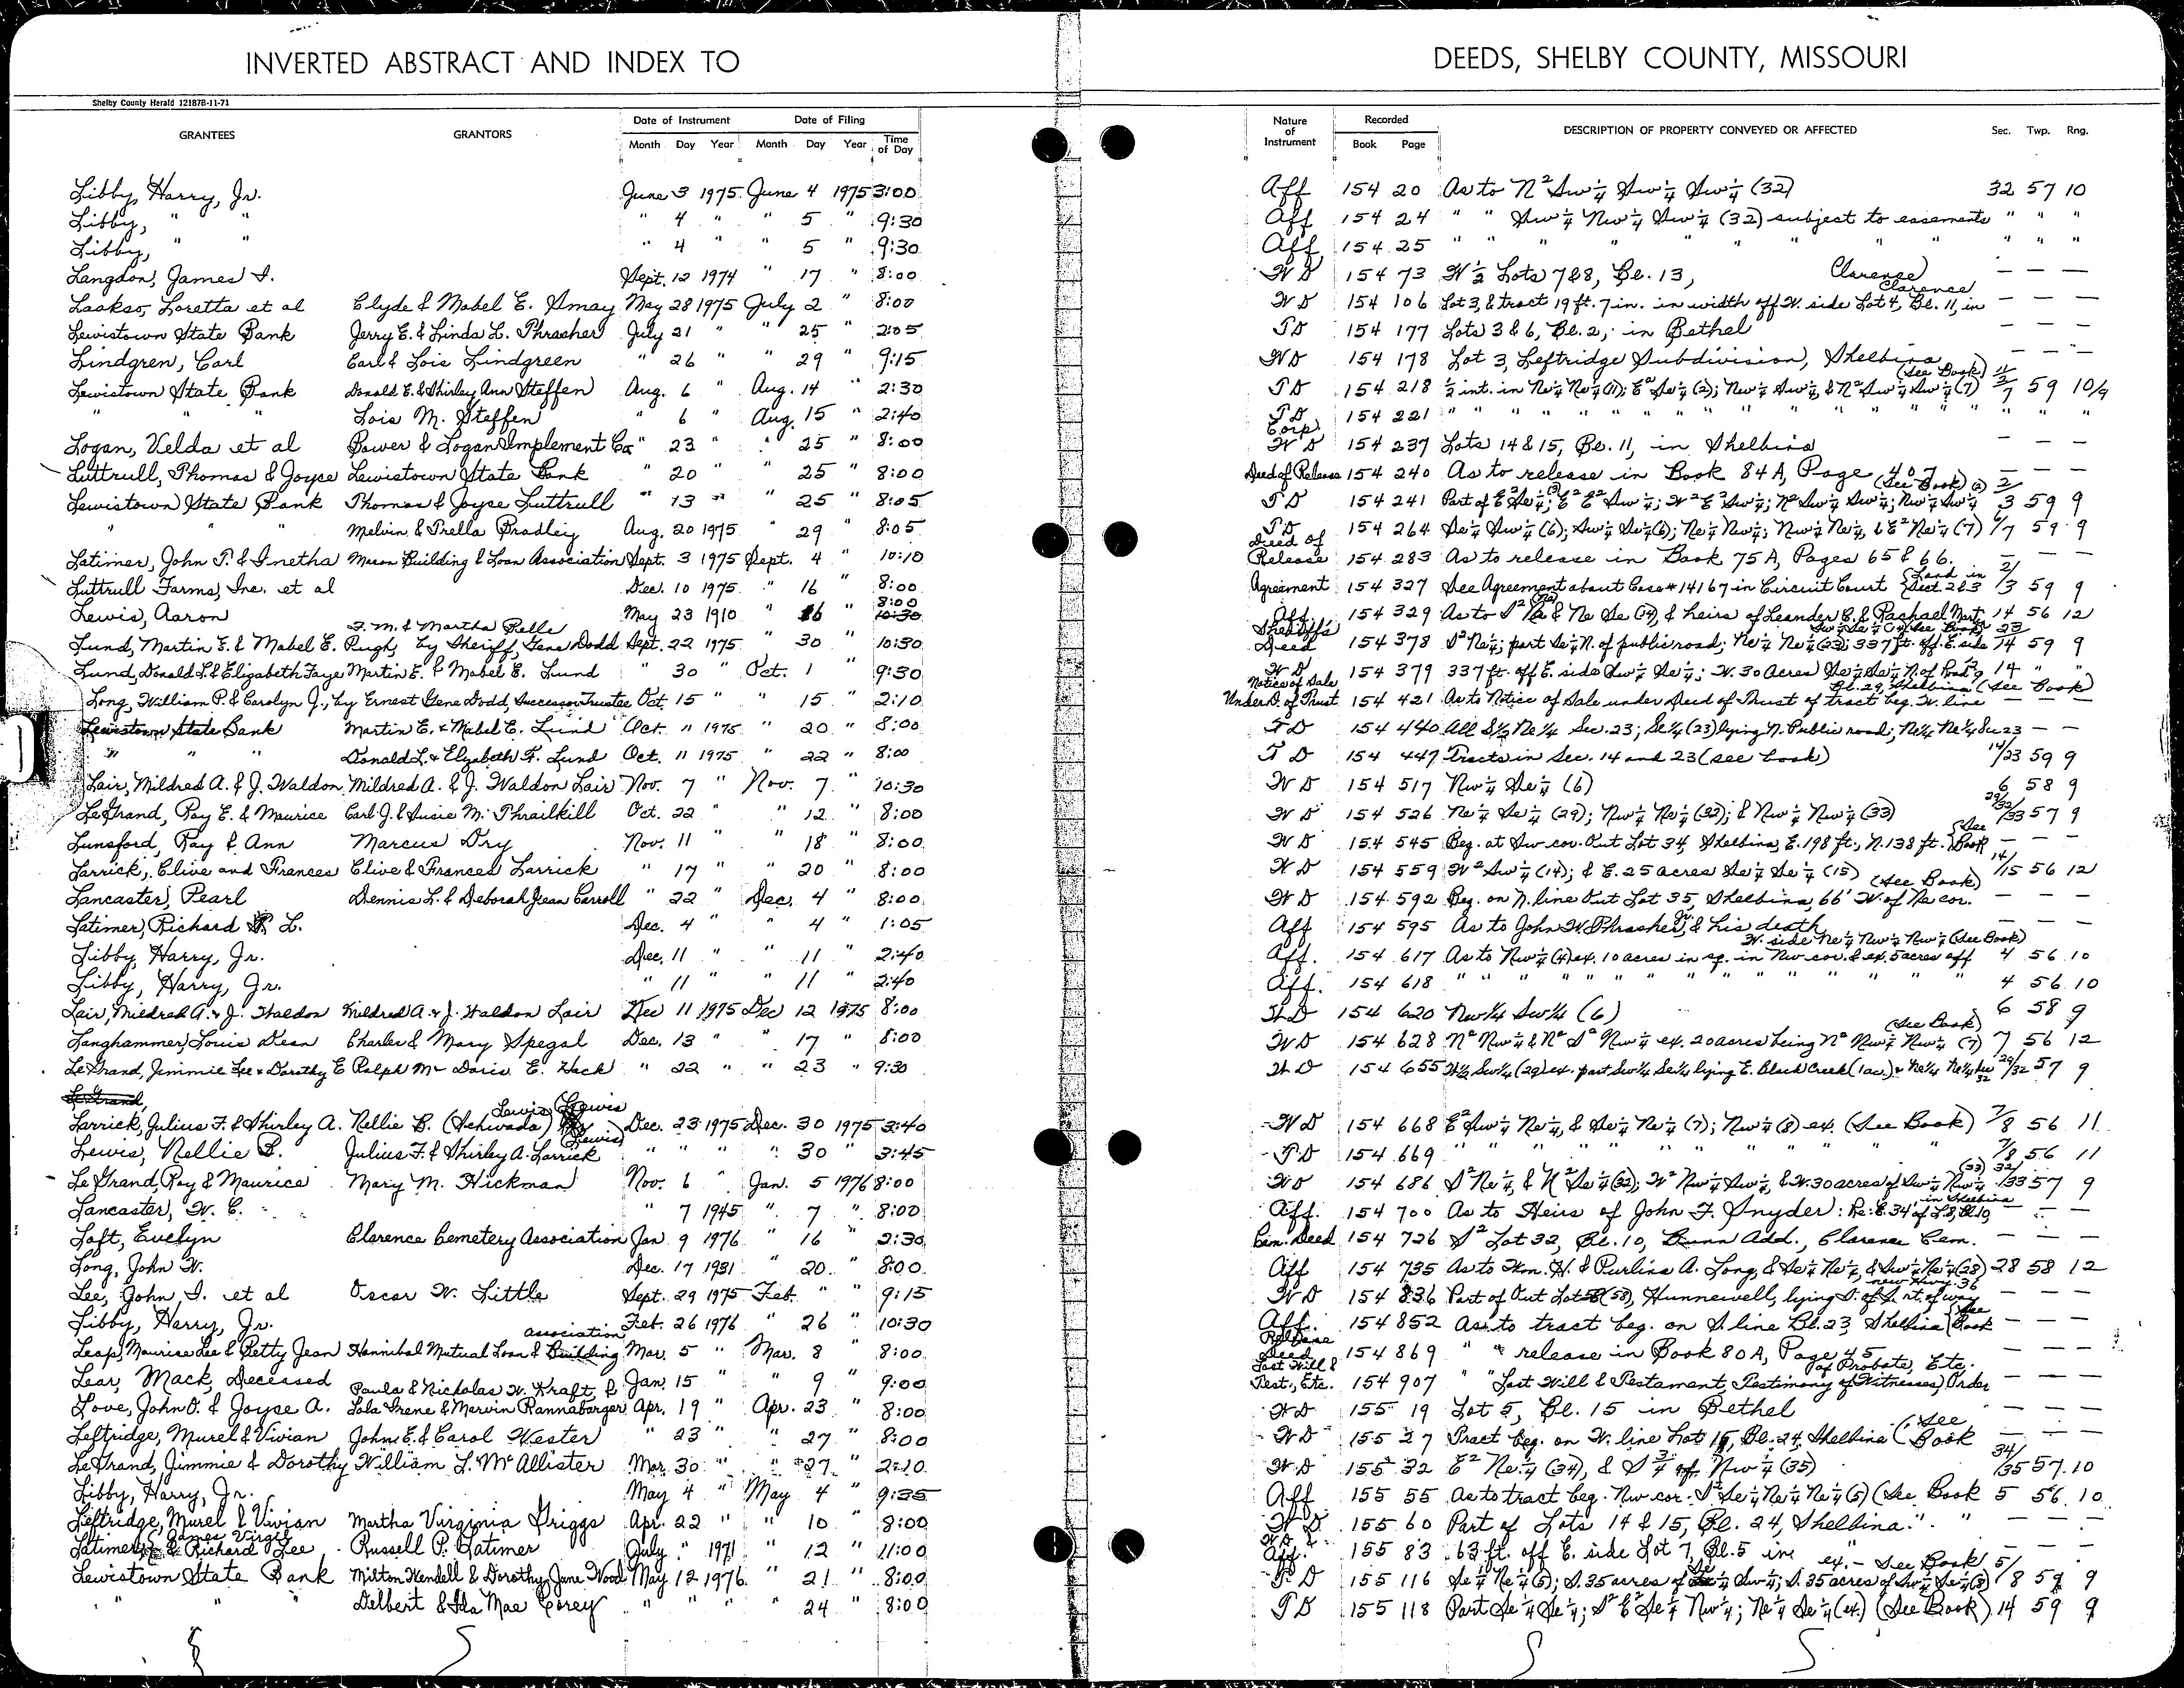 INVERTED ABSTRACT AND INDEX TO DEEDS, SHELBY COUNTY, MISSOURI
Shelby County Herald 12187B-11-71
GRANTEES GRANTORS Date of Instrument Date of Filing Nature of Instrument Recorded DESCRIPTION OF PROPERTY CONVEYED OR AFFECTED Sec. Twp. Rng.
Month Day Year Month Day Year Time of Day Book Page
Libby, Harry, Jr. June 3 1975 June 4 1975 3:00 Aff 154 20 As to N² Sw¼ Sw¼ Sw¼ (32) 32 57 10
Libby, " " " 4 " " 5 " 9:30 Aff 154 24 " " Sw¼ Nw¼ Sw¼ (32) subject to easements " " "
Libby, " " " 4 " " 5 " 9:30 Aff 154 25 " " " " " " " " " " "
Langdon, James I. Sept. 12 1974 " 17 " 8:00 WD 154 73 W½ Lots 7&8, Bl. 13, Clarence — — —
Laakso, Loretta et al Clyde & Mabel E. Amay May 28 1975 July 2 " 8:00 WD 154 106 Lot 3, & tract 19 ft. 7 in. in width off W. side Lot 4, Bl. 11, in Clarence — — —
Lewistown State Bank Jerry E. & Linda L. Thrasher July 21 " " 25 " 2:05 TD 154 177 Lots 3 & 6, Bl. 2, in Bethel — — —
Lindgren, Carl Earl & Lois Lindgreen " 26 " " 29 " 9:15 WD 154 178 Lot 3, Leftridge Subdivision, Shelbina — — —
Lewistown State Bank Donald E. & Shirley Ann Steffen Aug. 6 " Aug. 14 " 2:30 TD 154 218 ½ int. in Ne¼ Ne¼ (11); E² Se¼ (2); Nw¼ Sw¼, & N² Sw¼ Sw¼ (7) (See Book) 11/2/7 59 10/9
" " " Lois M. Steffen " 6 " Aug. 15 " 2:40 TD 154 221 " " " " " " " " " " " "
Logan, Velda et al Bower & Logan Implement Co. " 23 " " 25 " 8:00 Corp. WD 154 237 Lots 14 & 15, Bl. 11, in Shelbina — — —
Luttrull, Thomas & Joyce Lewistown State Bank " 20 " " 25 " 8:00 Deed of Release 154 240 As to release in Book 84A, Page 407 — — —
Lewistown State Bank Thomas & Joyce Luttrull " 13 " " 25 " 8:05 TD 154 241 Part of E² Se¼; E² E² Sw¼; W² E² Sw¼; N² Sw¼ Sw¼; Nw¼ Sw¼ (See Book) 2/3 59 9
" " " Melvin & Trella Bradley Aug. 20 1975 " 29 " 8:05 TD 154 264 Se¼ Sw¼ (6); Sw¼ Se¼ (6); Ne¼ Nw¼; Nw¼ Ne¼, & E² Ne¼ (7) 6/7 59 9
Latimer, John T. & Inetha Macon Building & Loan Association Sept. 3 1975 Sept. 4 " 10:10 Deed of Release 154 283 As to release in Book 75A, Pages 65 & 66. — — —
Luttrull Farms, Inc. et al Dec. 10 1975 " 16 " 8:00 Agreement 154 327 See Agreement about Case #14167 in Circuit Court (Land in Sect. 2&3 2/3 59 9
Lewis, Aaron May 23 1910 " 16 " 8:00 Aff. 154 329 As to S² Ne & Ne Se (14), & heirs of Leander C. & Rachael 14 56 12
Lund, Martin E. & Mabel E. F. M. & Martha Belle Pugh, by Sheriff, Gene Dodd Sept. 22 1975 " 30 " 10:30 Sheriff's Deed 154 378 S² Ne¼; part Se¼ N. of public road; Ne¼ Ne¼ (23); 337 ft. off E. side Sw¼ Se¼ (14) (See Book) 23/14 59 9
Lund, Donald L. & Elizabeth Faye Martin E. & Mabel E. Lund " 30 " Oct. 1 " 9:30 WD 154 379 337 ft. off E. side Sw¼ Se¼; W. 30 Acres Se¼ Se¼ N. of Road 14 " "
Long, William P. & Carolyn J., by Ernest Gene Dodd, Successor Trustee Oct. 15 " " 15 " 2:10 Notice of Sale Under D. of Trust 154 421 As to Notice of Sale under Deed of Trust of tract beg. W. line Bl. 29, Shelbina (See Book) — — —
Lewistown State Bank Martin E. & Mabel E. Lund Oct. 11 1975 " 20 " 8:00 TD 154 440 All S½ Ne¼ Sec. 23; Se¼ (23) lying N. Public road; Ne¼ Ne¼ Sec 23 — —
" " " Donald L. & Elizabeth F. Lund Oct. 11 1975 " 22 " 8:00 TD 154 447 Tracts in Sec. 14 and 23 (see book) 14/23 59 9
Lair, Mildred A. & J. Waldon Mildred A. & J. Waldon Lair Nov. 7 " Nov. 7 " 10:30 WD 154 517 Nw¼ Se¼ (6) 6 58 9
LeGrand, Roy E. & Maurice Carl J. & Susie M. Thrailkill Oct. 22 " " 12 " 8:00 WD 154 526 Ne¼ Se¼ (29); Nw¼ Ne¼ (32); & Nw¼ Nw¼ (33) 29/32/33 57 9
Lunsford, Ray & Ann Marcus Dry Nov. 11 " " 18 " 8:00 WD 154 545 Beg. at Sw cor. Out Lot 34, Shelbina, E. 198 ft., N. 138 ft. (See Book — — —
Larrick, Clive and Frances Clive & Frances Larrick " 17 " " 20 " 8:00 WD 154 559 W² Sw¼ (14); & E. 25 acres Se¼ Se¼ (15) 14/15 56 12
Lancaster, Pearl Dennis L. & Deborah Jean Carroll " 22 " Dec. 4 " 8:00 WD 154 592 Beg. on N. line Out Lot 35, Shelbina, 66' W. of Ne cor. (See Book) — — —
Latimer, Richard L. Dec. 4 " " 4 " 1:05 Aff 154 595 As to John W. Thrasher, Jr. & his death — — —
Libby, Harry, Jr. Dec. 11 " " 11 " 2:40 Aff. 154 617 As to Nw¼ (4) ex. 10 acres in sq. in Nw cor. & ex. 5 acres off W. side Ne¼ Nw¼ Nw¼ (See Book) 4 56 10
Libby, Harry, Jr. " 11 " " 11 " 2:40 Aff. 154 618 " " " " " " " " " " 4 56 10
Lair, Mildred A. & J. Waldon Mildred A. & J. Waldon Lair Dec 11 1975 Dec 12 1975 8:00 WD 154 620 Nw¼ Sw¼ (6) 6 58 9
Langhammer, Louis Dean Charles & Mary Spegal Dec. 13 " " 17 " 8:00 WD 154 628 N² Nw¼ & N² S² Nw¼ ex. 20 acres being N² Nw¼ Nw¼ (7) (See Book) 7 56 12
LeGrand, Jimmie Lee & Dorothy E Ralph M & Doris E. Hack " 22 " " 23 " 9:30 WD 154 655 W½ Sw¼ (29) ex. part Sw¼ Se¼ lying E. Black Creek (1 ac.) & Ne¼ Ne¼ Sec 32 29/32 57 9
LeGrand,
Larrick, Julius F. & Shirley A. Nellie B. (Schwada) Lewis Dec. 23 1975 Dec. 30 1975 3:40 WD 154 668 E² Sw¼ Ne¼, & Se¼ Ne¼ (7); Nw¼ (8) ex. (See Book) 7/8 56 11
Lewis, Nellie B. Julius F. & Shirley A. Larrick " " " " 30 " 3:45 TD 154 669 " " " " " " " 7/8 56 11
LeGrand, Roy & Maurice Mary M. Hickman Nov. 6 " Jan. 5 1976 8:00 WD 154 686 S² Ne¼, & N² Se¼ (32); W² Nw¼ Sw¼, & W. 30 acres of Sw¼ Nw¼ (33) 32/33 57 9
Lancaster, W. C. " 7 1945 " 7 " 8:00 Aff. 154 700 As to Heirs of John F. Snyder: Re: E. 34' of L8, Bl. 10, in Shelbina — — —
Loft, Evelyn Clarence Cemetery Association Jan 9 1976 " 16 " 2:30 Cem. Deed 154 726 S² Lot 32, Bl. 10, Bunn Add., Clarence Cem. — — —
Long, John W. Dec. 17 1931 " 20 " 8:00 Aff 154 735 As to Wm. H. & Purlina A. Long, & Se¼ Ne¼, & Sw¼ Ne¼ (28) 28 58 12
Lee, John I. et al Oscar W. Little Sept. 29 1975 Feb. " " 9:15 WD 154 836 Part of Out Lot 58 (58), Hunnewell, lying S. of S. rt. of way new Hwy. 36 — — —
Libby, Harry, Jr. Feb. 26 1976 " 26 " 10:30 Aff. 154 852 As to tract beg. on S line Bl. 23, Shelbina (See Book — — —
Leap, Maurice Lee & Betty Jean Hannibal Mutual Loan & Building Association Mar. 5 " Mar. 8 " 8:00 Release Deed 154 869 " " release in Book 80A, Page 45 — — —
Lear, Mack, Deceased Jan. 15 " " 9 " 9:00 Last Will & Test., Etc. 154 907 " " Last Will & Testament, Testimony of Witnesses, Order of Probate, Etc. — — —
Love, John O. & Joyce A. Paula & Nicholas W. Kraft, & Lola Irene & Marvin Rannabarger Apr. 19 " Apr. 23 " 8:00 WD 155 19 Lot 5, Bl. 15 in Bethel — — —
Leftridge, Murel & Vivian John E. & Carol Wester " 23 " " 27 " 8:00 WD 155 27 Tract beg. on W. line Lot 15, Bl. 24, Shelbina (See Book — — —
LeGrand, Jimmie & Dorothy William L. McAllister Mar. 30 " " 27 " 2:10 WD 155 32 E² Ne¼ (34), & S¾ of Nw¼ (35) 34/35 57 10
Libby, Harry, Jr. May 4 " May 4 " 9:35 Aff 155 55 As to tract beg. Nw cor. S² Se¼ Ne¼ Ne¼ (5) (See Book 5 56 10
Leftridge, Murel & Vivian Martha Virginia Griggs Apr. 22 " " 10 " 8:00 WD 155 60 Part of Lots 14 & 15, Bl. 24, Shelbina — — —
Latimer, James Virgil & Richard Lee Russell P. Latimer July " 1971 " 12 " 11:00 WD & Aff. 155 83 63 ft. off E. side Lot 7, Bl. 5 in " — — —
Lewistown State Bank Milton Wendell & Dorothy June Wood May 12 1976 " 21 " 8:00 TD 155 116 Se¼ Ne¼ (5); S. 35 acres of Se¼ Sw¼; S. 35 acres of Sw¼ Se¼ (8) ex. — See Book 5/8 59 9
" " " Delbert & Ida Mae Corey " " " " 24 " 8:00 TD 155 118 Part Se¼ Se¼; S² E² Se¼ Nw¼; Ne¼ Se¼ (ex.) (See Book) 14 59 9